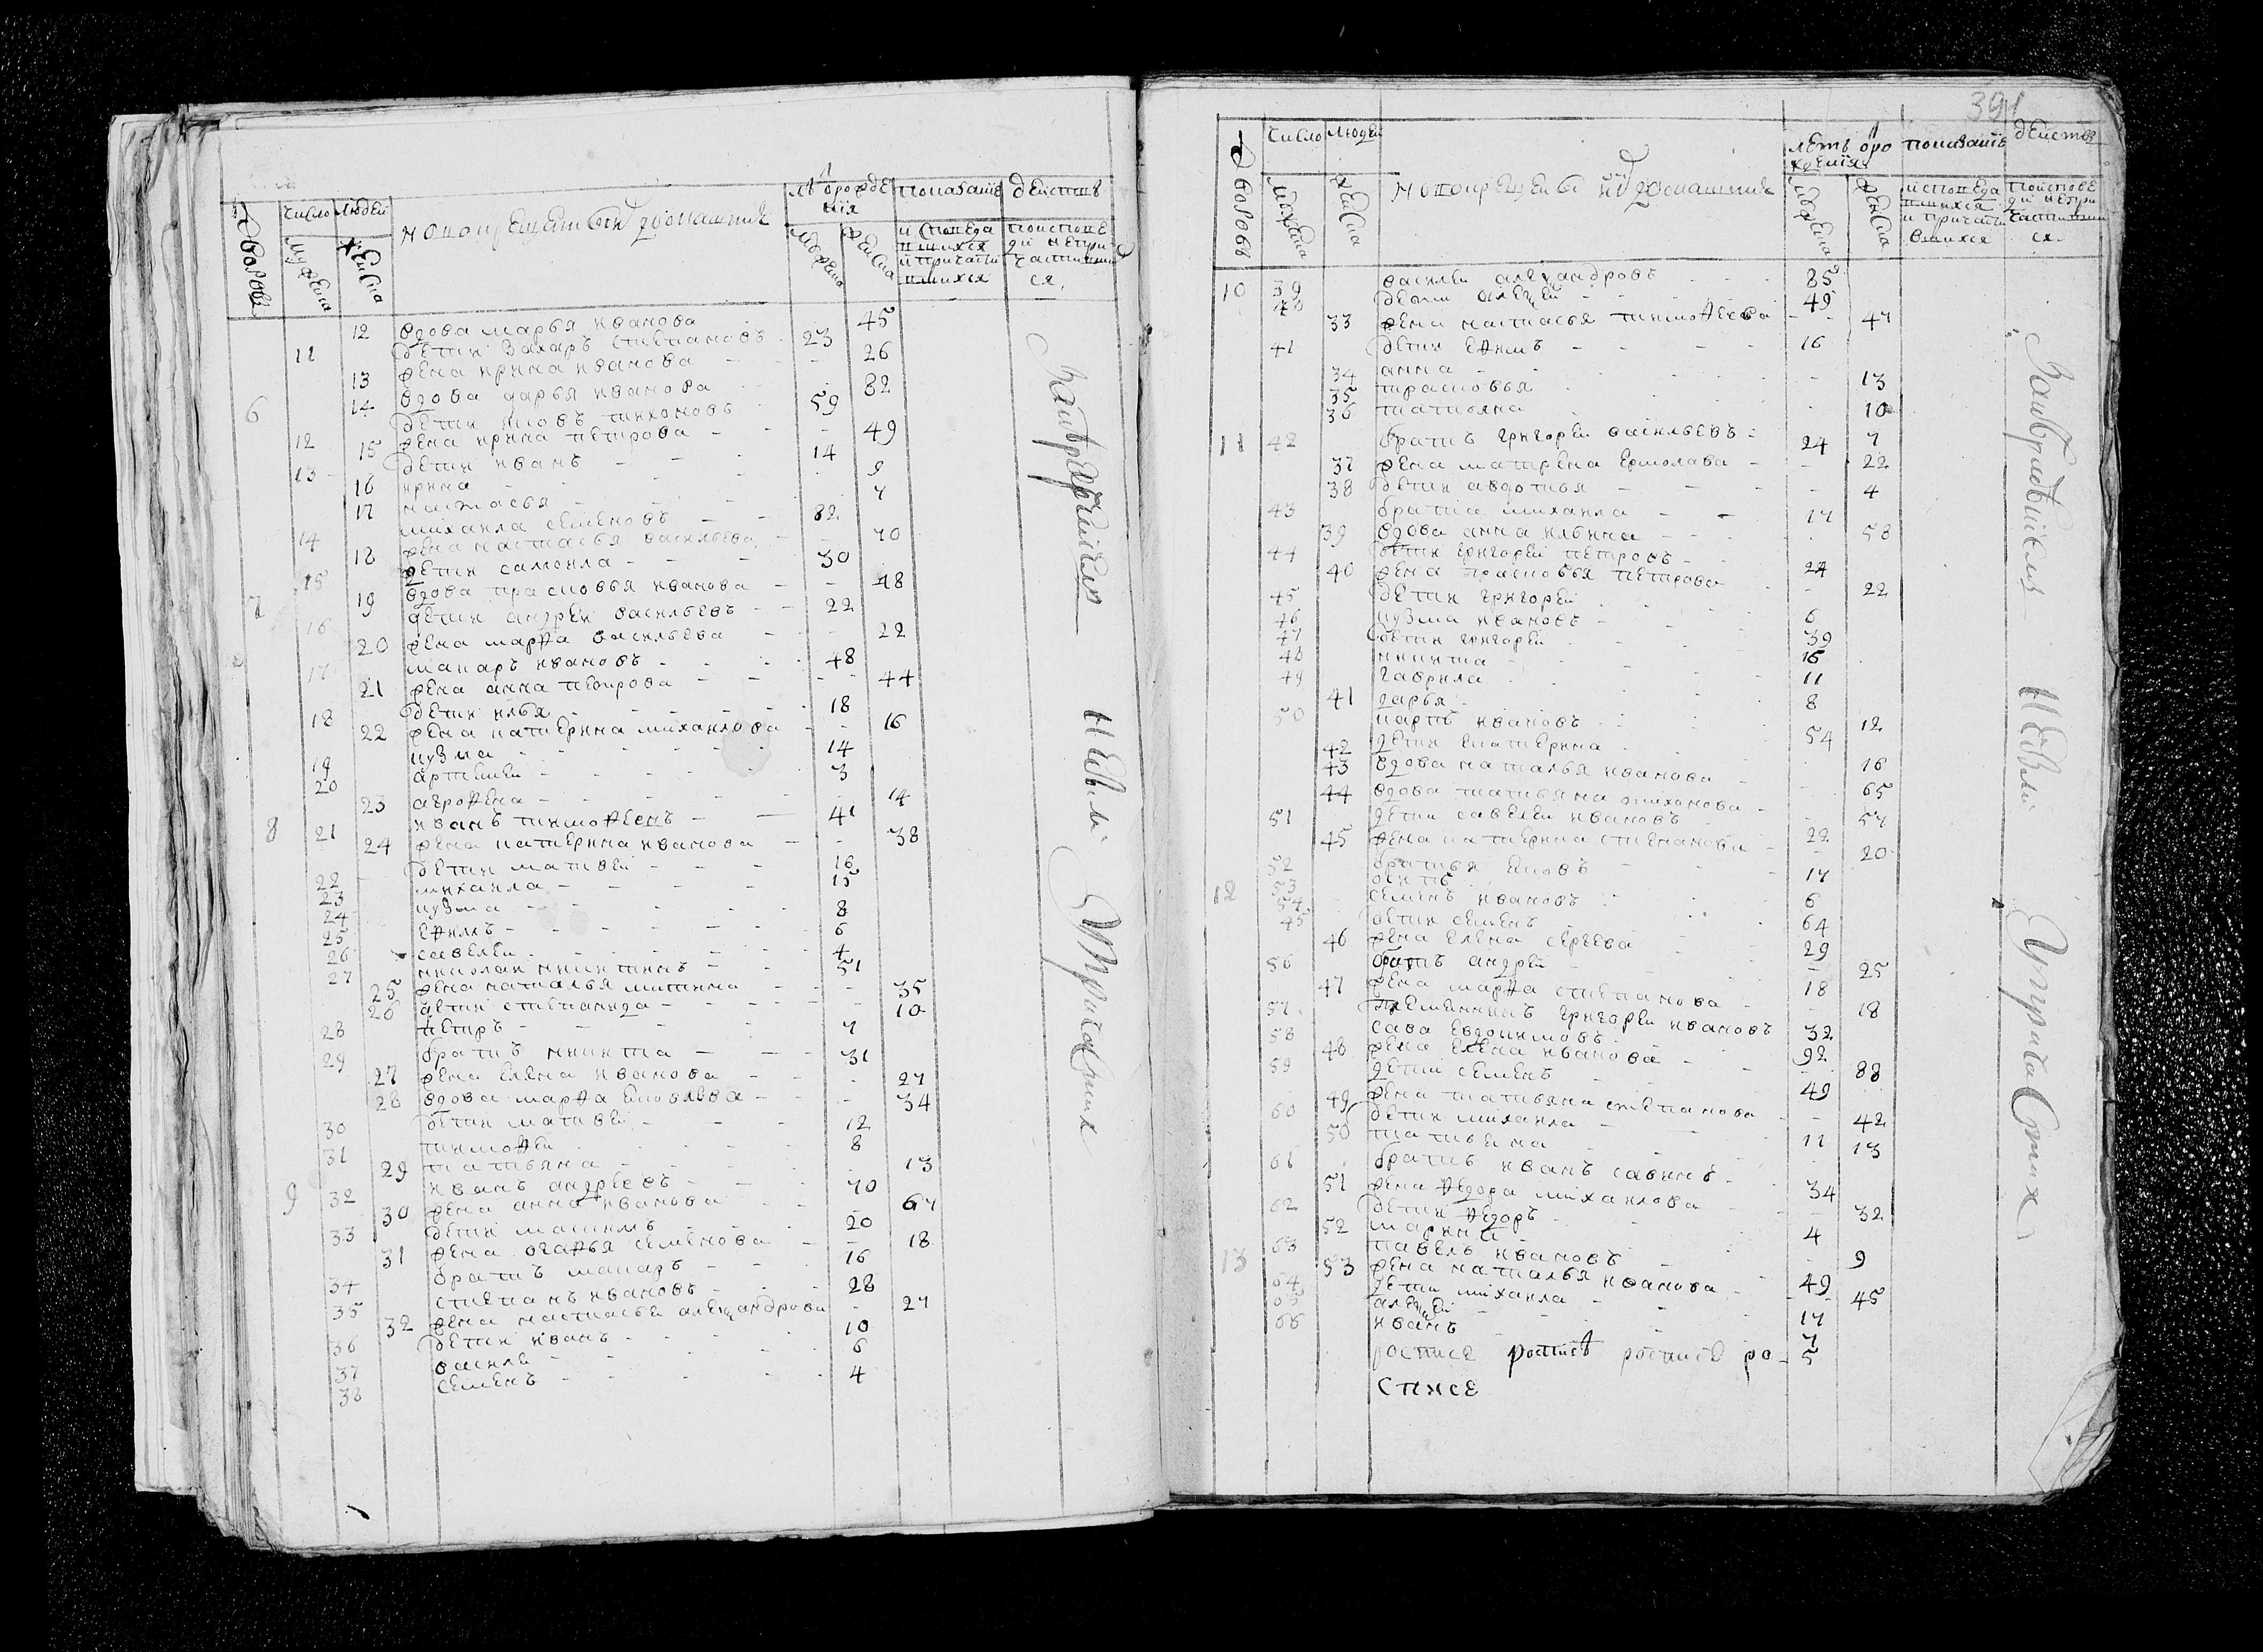 число людей
дворовъ
мужеска
женска
новокрещеныи и домашнія
лѣ орожде
нія
мужеска
женска
показаніе
действ
исповеда
вшихся
и причасти
вшихся
поиспове
ди непри
частивши
ся
12 вдова марья иванова 45
11 дети захаръ степановъ 23
13 жена ирина иванова 26
6 14 вдова дарья иванова 82
12 дети иповъ тихоновъ 59
15 жена ирина петрова 49
13 дети иванъ 14
16 ирина 9
17 настасья 7
14 михаила семеновъ 82
18 жена настасья васильева 70
15 дети самоила 30
7 19 вдова прасковья иванова 48
16 дети андреи васильевъ 22
20 жена марѳа васильева 22
17 макаръ ивановъ 48
21 жена анна петрова 44
18 дети илья 18
22 жена катерина михаилова 16
19 кузма 14
20 артемеи 3
23 агроѳена 14
8 21 иванъ тимоѳеевъ 41
24 жена катерина иванова 38
22 дети матвеи 16
23 михаила 15
24 кузма 8
25 еѳимъ 6
26 савелеи 4
27 николаи никитинъ 51
25 жена наталья митина 35
26 дети степанида 10
28 петръ 7
29 братъ никита 31
27 жена елена иванова 27
28 вдова марѳа яковлева 34
30 дети матвеи 12
31 тимоѳеи 8
29 татьяна 13
9 32 иванъ андреевъ 70
30 жена анна иванова 67
33 дети максимъ 20
31 жена огаѳья семенова 18
34 братъ макаръ 16
35 степанъ ивановъ 28
32 жена настасья александрова 27
36 дети иванъ 10
37 василеи 6
38 семенъ 4
391
дворовъ
число людей
мужеска
женска
новокрещены и домашнія
летъ оро
женія
мужеска
женска
показаніе
действ
исповеда
вшихся
и причасти
вшихся
поиспове
ди непри
частивши
ся
10 39 василеи александровъ 85
40 дети алексеи 49
33 жена настасья тимоѳеева 47
41 дети еѳимъ 16
34 анна 13
35 прасковья 10
36 татьяна 7
11 42 братъ григореи васильевъ 24
37 жена матрена ермолава 22
38 дети авдотья 4
43 братъ михаила 17
39 вдова анна ильина 58
44 дети григореи петровъ 24
40 жена прасковья петрова 22
45 дети григореи 6
46 кузма ивановъ 39
47 дети григореи 16
48 никита 11
49 гаврила 8
41 дарья 12
50 карпъ ивановъ 54
42 дети екатерина 16
43 вдова наталья иванова 65
44 вдова татьяна тихонова 57
51 дети савелеи ивановъ 22
45 жена катерина степанова 20
52 братья яковъ 17
53 осипъ 6
12 54 семенъ ивановъ 64
45 дети семенъ 29
46 жена елена сергеева 25
56 братъ андреи 18
47 жена марѳа степанова 18
57 племянникъ григореи ивановъ 32
58 сава евдокимовъ 92
48 жена елена иванова 88
59 дети семенъ 49
49 жена татьяна степанова 42
60 дети михаила 11
50 татьяна 13
61 братъ иванъ савинъ 34
51 жена ѳедора михаилова 32
62 дети ѳедоръ 4
52 марина 9
13 63 павелъ ивановъ 49
53 жена наталья иванова 45
64 дети михаила 17
65 алексеи 7
66 иванъ 5
росписе росписе росписе ро
списе